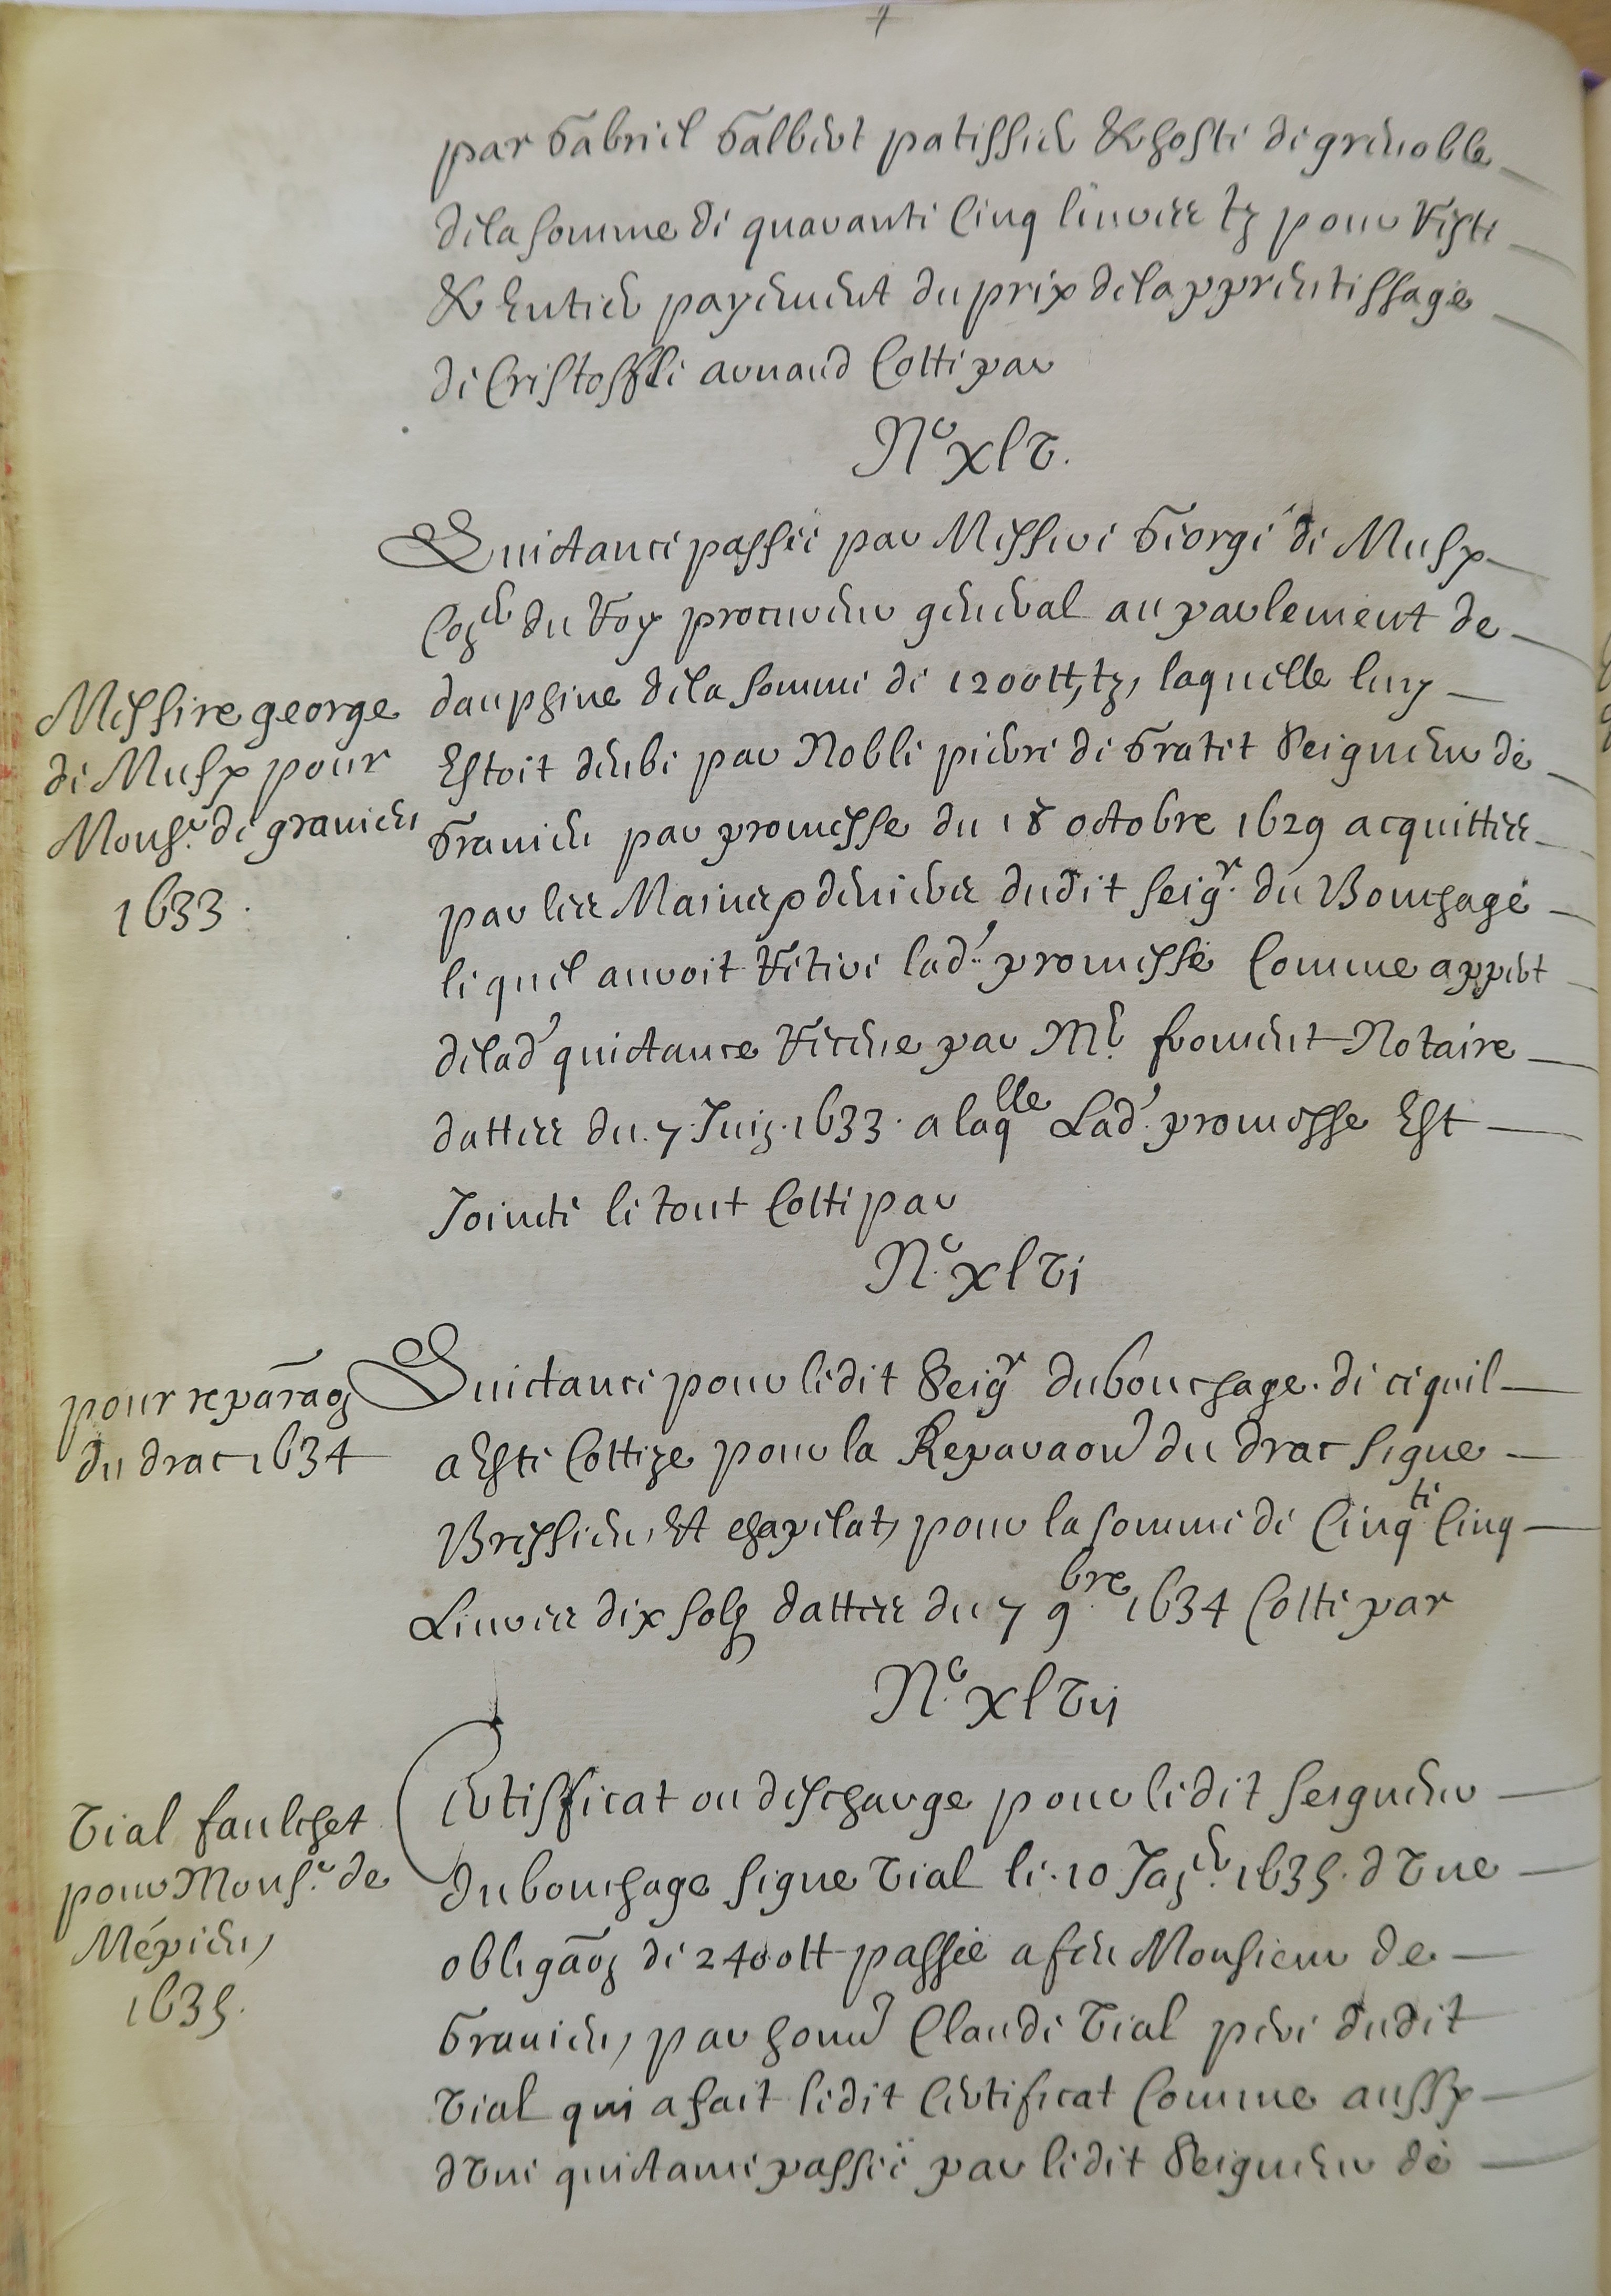 par Gabriel Galbert patissier & hoste de grenoble
de la somme de quarante cinq livres tz pour reste
& entier payement du prix de lapprentissage
de Cristoffle arnaud Cotté par
No xlv.
Quictance passée par Messire George de Musy
Con.er du Roy procureur general au parlement de
Messire george
de Musy pour
Monsr. de gravieu
1633.
dauphine de la somme de 1200tt, tz, laquelle luy
Estoit deube par Noble pierre de Gratet Seigneur de
Gravieu par promesse du 18 octobre 1629 acquittee
par les Mains & deniers dudit seigr. du Bouchage
lequel auroit Retiré lad. promesse Comme appert
de lad quictance Receue par Me. froment Notaire
dattée du 7 Juin 1633 a laqlle Lad. promesse Est
Joincte le tout Cotté par
No. xlvi
pour reparaon
du drac 1634
Quictance pour ledit Seigr dubouchage de ce quil
a Esté Cottize pour la Reparaon du drac signe
Bressieu, Et chapelat, pour la somme de Cinqte Cinq
Livres dix solz dattée du 7 9bre 1634 Cotté par
No. xlvij
Vial faulchet
pour Monsr. de
Mépieu,
1635.
Certifficat ou descharge pour ledit seigneur
du bouchage signe Vial le 10 Janer. 1635. dVne
obligaon de 2400tt passée a feu Monsieur de
Gravieu, par honn Claude Vial pere dudit
Vial qui a fait ledit Certificat Comme aussy
dVne quictance passée par ledit Seigneur de